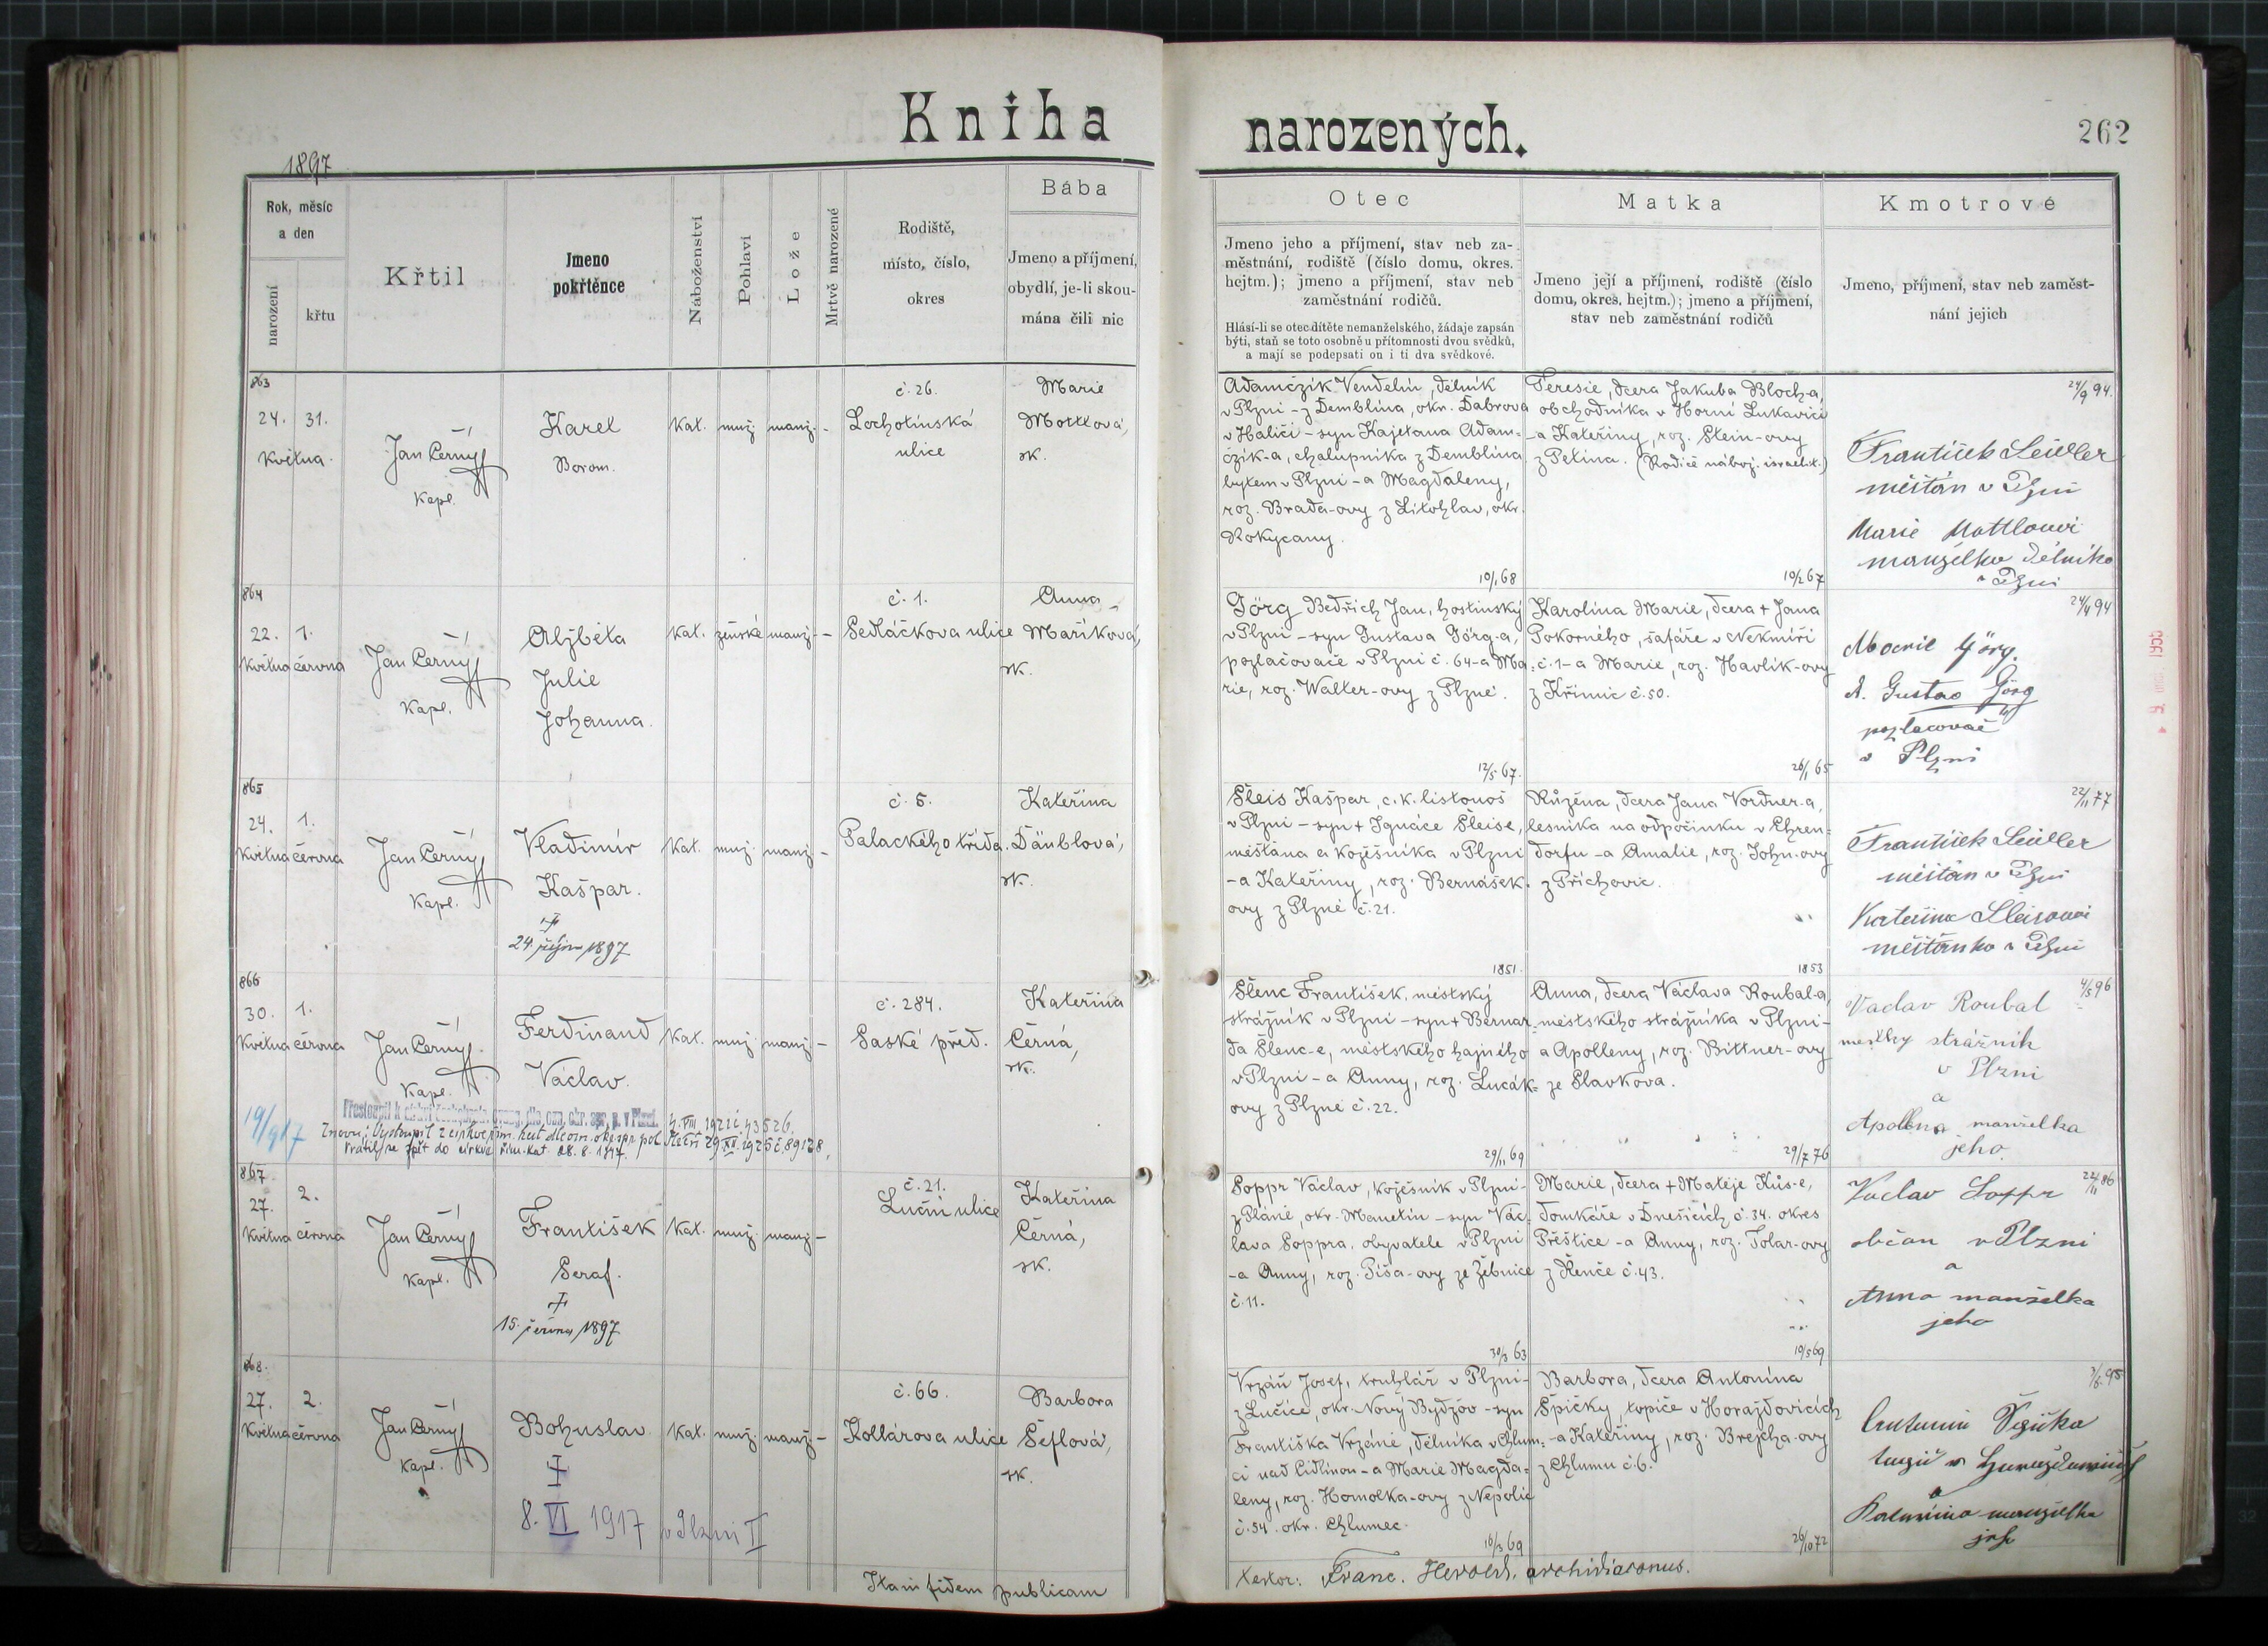 Kniha
narozených.
262
1897
Rok, měsíc
a den
narození
křtu
Křtil
Jmeno
pokřtěnce
Náboženství
Pohlaví
Lože
Mrtvě narozené
Rodiště,
místo, číslo,
okres
Bába
Jmeno a příjmení,
obydlí, je-li skou-
mána čili nic
Otec
Jmeno jeho a příjmení, stav neb za-
městnání, rodiště (číslo domu, okres.
hejtm.); jmeno a příjmení, stav neb
zaměstnání rodičů.
Hlásí-li se otec dítěte nemanželského, žádaje zapsán
býti, staň se toto osobně u přítomnosti dvou svědků,
a mají se podepsati on i ti dva svědkové.
Matka
Jmeno její a příjmení, rodiště (číslo
domu, okres. hejtm.); jmeno a příjmení,
stav neb zaměstnání rodičů
Kmotrové
Jmeno, příjmení, stav neb zaměst-
nání jejich
863
24. 31.
Května
Jan Černý
Kapl.
Karel
Borom.
Kat. muž. manž. -
č. 26.
Lochotínská
ulice
Marie
Mottlová,
zk.
Adamczik Vendelín, dělník
v Plzni - z Demblina, okr. Dabrova
v Haliči - syn Kajetana Adam=
czik-a, chalupníka z Demblina
bytem v Plzni - a Magdaleny,
roz. Brada-ovy z Litohlav, okr.
Rokycany.
10/1 68
Teresie, dcera Jakuba Bloch-a,
obchodníka v Horní Lukavici
- a Kateřiny, roz. Stein-ovy
z Petina. (Rodiče nábož. israelit.)
10/2 67
24/9 94.
František Seidler
měšťan v Plzni
Marie Mottlová
manželka dělníka
v Plzni
864
22. 1.
Května června
Jan Černý
Kapl.
Alžběta
Julie
Johanna.
Kat. ženské manž. -
č. 1.
Sedláčkova ulice
Anna
Maříková,
zk.
Görg Bedřich Jan, hostinský
v Plzni - syn Gustava Görg-a,
pozlačovače v Plzni č. 64 - a Ma=
rie, roz. Walter-ovy z Plzně.
12/5 67.
Karolina Marie, dcera + Jana
Pokorného, šafáře v Nekmíři
č. 1 - a Marie, roz. Havlík-ovy
z Křimic č. 50.
26/1 65
24/4 94
Marie Görg.
A. Gustav Görg
pozlacovač
v Plzni
865
24. 1.
Května června
Jan Černý
Kapl.
Vladimír
Kašpar.
+
24. října 1897
Kat. muž. manž. -
č. 5.
Palackého třída.
Kateřina
Däublová,
zk.
Šleis Kašpar, c. k. listonoš
v Plzni - syn + Ignáce Šleise,
měšťana a kožešníka v Plzni
- a Kateřiny, roz. Bernášek-
ovy z Plzně č. 21.
1851.
Růžena, dcera Jana Vordner-a,
lesníka na odpočinku v Ehren=
dorfu - a Amalie, roz. John-ovy
z Příchovic.
1853
22/11 77
František Seidler
měšťan v Plzni
Kateřina Šleisová
měšťanka v Plzni
866
30. 1.
Května června
Jan Černý
Kapl.
Ferdinand
Václav.
Kat. muž. manž. -
č. 284.
Saské před.
Kateřina
Černá,
zk.
19/9 17
Přestoupil k církvi českobratr. evang. dle ozn. okr. spr. p. v Plzni. 4. VIII 1921 č. 43526.
Znovu: Vystoupil z církve řím. kat. dle ozn. okr. spr. pol. Plzeň 29. XII. 1925 č. 89128,
Vrátil se zpět do církve řím. kat. 28. 8. 1947.
Šlenc František, městský
strážník v Plzni - syn + Bernar=
da Šlenc-e, městského hajného
v Plzni - a Anny, roz. Lucák=
ovy z Plzně č. 22.
29/11 69
Anna, dcera Václava Roubal-a,
městského strážníka v Plzni -
a Apolleny, roz. Bittner-ovy
ze Slavkova.
29/7 76
4/5 96
Vaclav Roubal
městky strážník
v Plzni
a
Apolena manželka
jeho.
867
27. 2.
Května června
Jan Černý
Kapl.
František
Seraf.
+
15. června 1897
Kat. muž. manž. -
č. 21.
Luční ulice
Kateřina
Černá,
zk.
Soppr Václav, kožešník v Plzni -
z Pláně, okr. Manetín - syn Vác=
lava Soppra, obyvatele v Plzni
- a Anny, roz. Píša-ovy ze Žebnice
č. 11.
30/3 63
Marie, dcera + Matěje Kůs-e,
domkáře v Dnešicích č. 34. okres
Přeštice - a Anny, roz. Tolar-ovy
z Řenče č. 43.
19/5 69
22/11 86
Vaclav Soppr
občan v Plzni
a
Anna manželka
jeho
868.
27. 2.
Května června
Jan Černý
Kapl.
Bohuslav
+
8. VI 1917 v Plzni II
Kat. muž. manž. -
č. 66.
Kollárova ulice
Barbora
Šeflová,
zk.
Vrzáň Josef, truhlář v Plzni -
z Lučice, okr. Nový Bydžov - syn
Františka Vrzáně, dělníka v Chlum=
ci nad Cidlinou - a Marie Magda=
leny, roz. Homolka-ovy z Nepolis
č. 54. okr. Chlumec.
16/3 69
Barbora, dcera Antonína
Špičky, topiče v Horažďovicích
- a Kateřiny, roz. Brejcha-ovy
z Chlumu č. 6.
26/10 72
Antonín Špička
topič v Horažďovicích
a
Kateřina manželka
jeho
Itani fidem publicam
testor: Franc. Herold, archidiaconus.